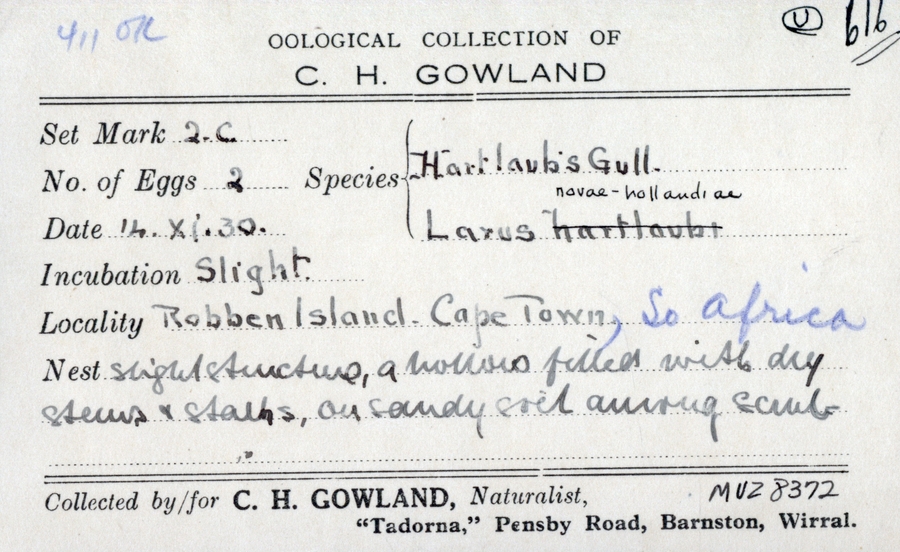 411 OK
U 616
OOLOGICAL COLLECTION OF
C. H. GOWLAND
Set Mark 2.C.
No. of Eggs 2 Species Hartlaub's Gull.
novae-hollandiae
Date 14. XI. 30. Larus hartlaubi
Incubation Slight.
Locality Robben Island. Cape Town, So Africa
Nest slight structure, a hollow filled with dry
stems & stalks, on sandy soil among scrub
Collected by/for C. H. GOWLAND, Naturalist,
MVZ 8372
"Tadorna," Pensby Road, Barnston, Wirral.